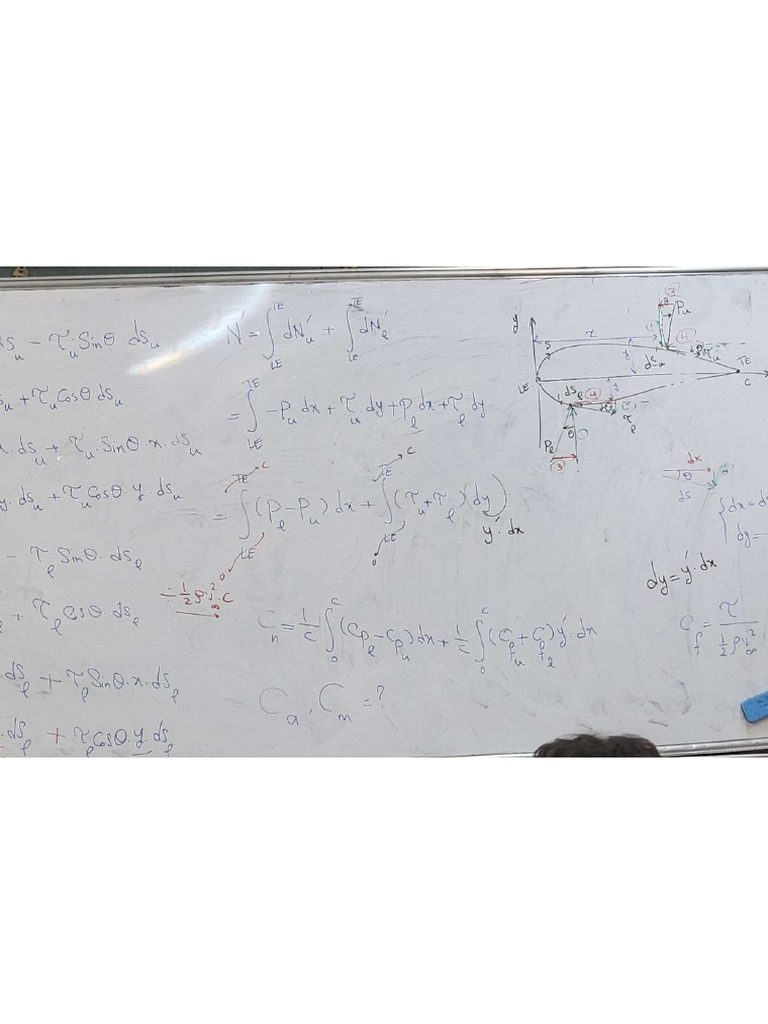 dS_u − τ_u Sinθ dS_u
S_u + τ_u Cosθ dS_u
x. dS_u + τ_u. Sinθ. x. dS_u
y. dS_u + τ_u Cosθ. y. dS_u
− τ_ℓ Sinθ. dS_ℓ
+ τ_ℓ Cosθ. dS_ℓ
. dS_ℓ + τ_ℓ Sinθ. x. dS_ℓ
. dS_ℓ + τ_ℓ Cosθ. y. dS_ℓ
N′ = ∫_LE^TE dN′_u + ∫_LE^TE dN′_ℓ
= ∫_LE^TE −P_u dx + τ_u dy + P_ℓ dx + τ_ℓ dy
= ∫_LE^TE (P_ℓ − P_u) dx + ∫_LE^TE (τ_u + τ_ℓ)(dy)
C C
0 0
y′. dx
÷ ½ ρ. v²_∞. C
C_n = 1/C ∫_0^C (C_Pℓ − C_Pu) dx + 1/C ∫_0^C (C_fu + C_fℓ) y′. dx
C_a, C_m = ?
y
x
③
θ
P_u
④
S
y
dS_u
τ_u
TE
LE
C
dS_ℓ
④
y
θ
τ_ℓ
P_ℓ
θ
③
dx
θ
dS
{dx = d
dy = −
dy = y′. dx
C_f = τ / ½ ρ v²_∞